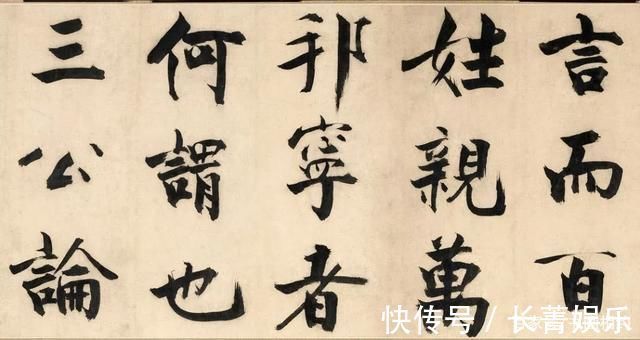 言而百
姓親萬
邦寧者
何謂也
三公論
快传号/长菁娱乐